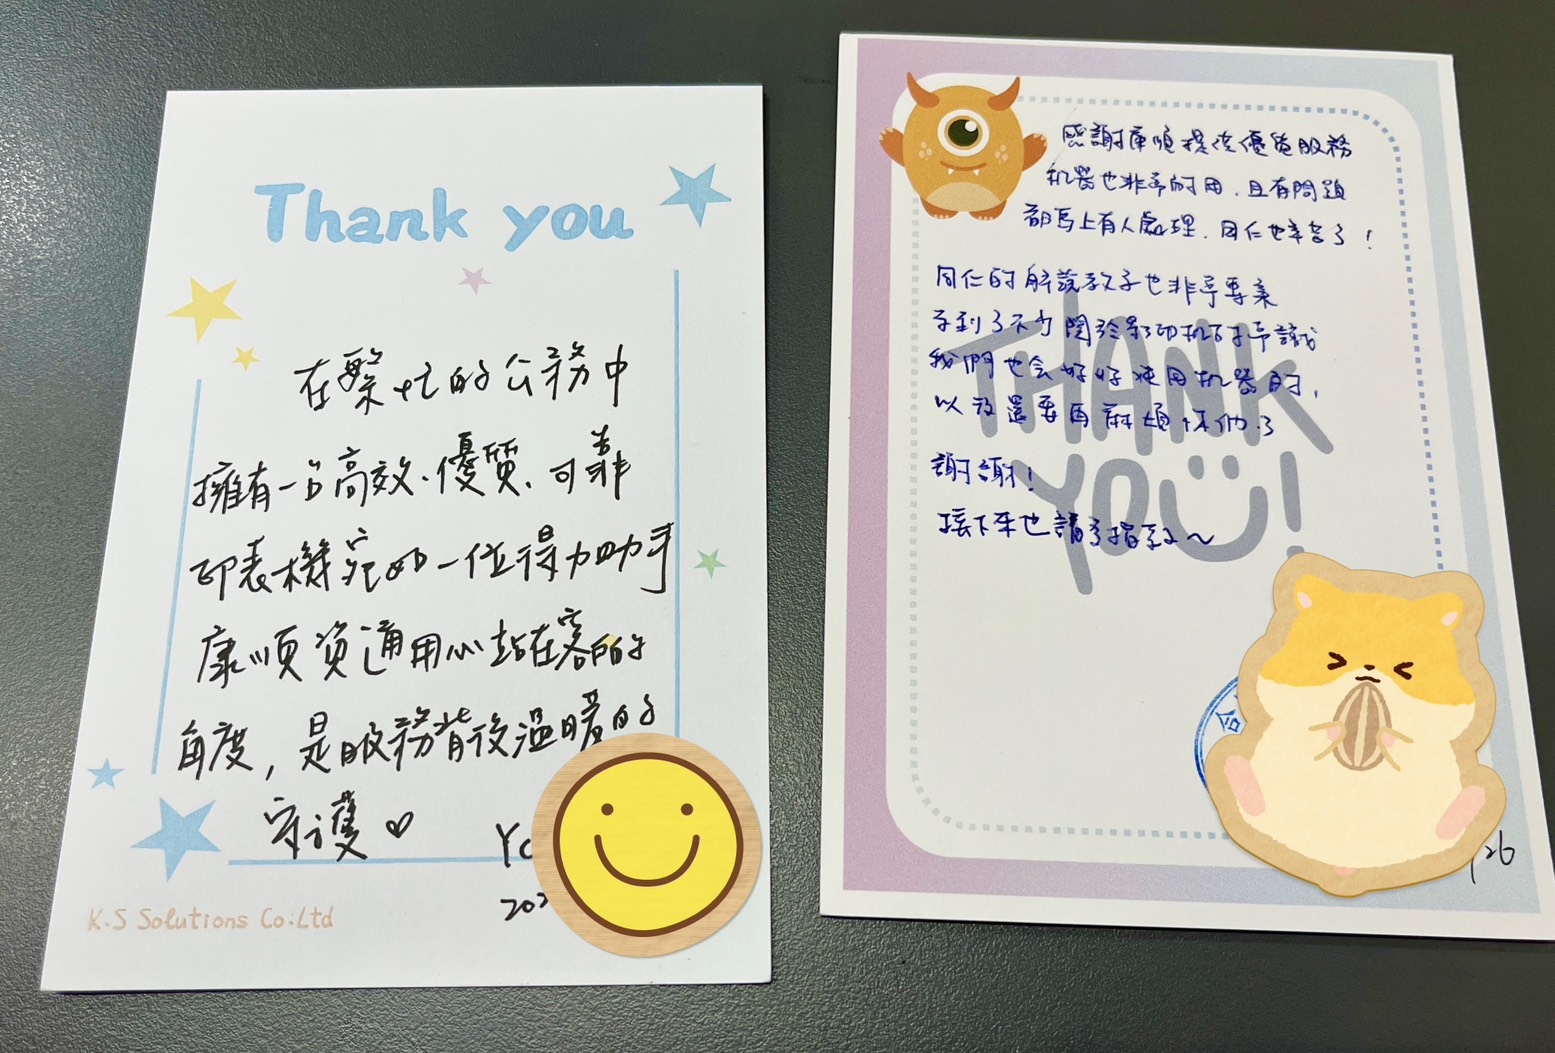 Thank you
在繁忙的公務中
擁有一台高效、優質、可靠
印表機宛如一位得力助手
康順資通用心站在客戶的
角度，是服務背後溫暖的
守護♡
Yo
202
K.S Solutions Co.Ltd
感謝康順提供優質服務
机器也非常耐用，且有問題
都馬上有人處理，同仁也辛苦了！
同仁的解說教學也非常專業
學到了不少關於影印机的知識
我們也会好好使用机器的，
以後還要再麻煩你們了
謝謝！
接下來也請多指教～
THANK
YOU!
合
26